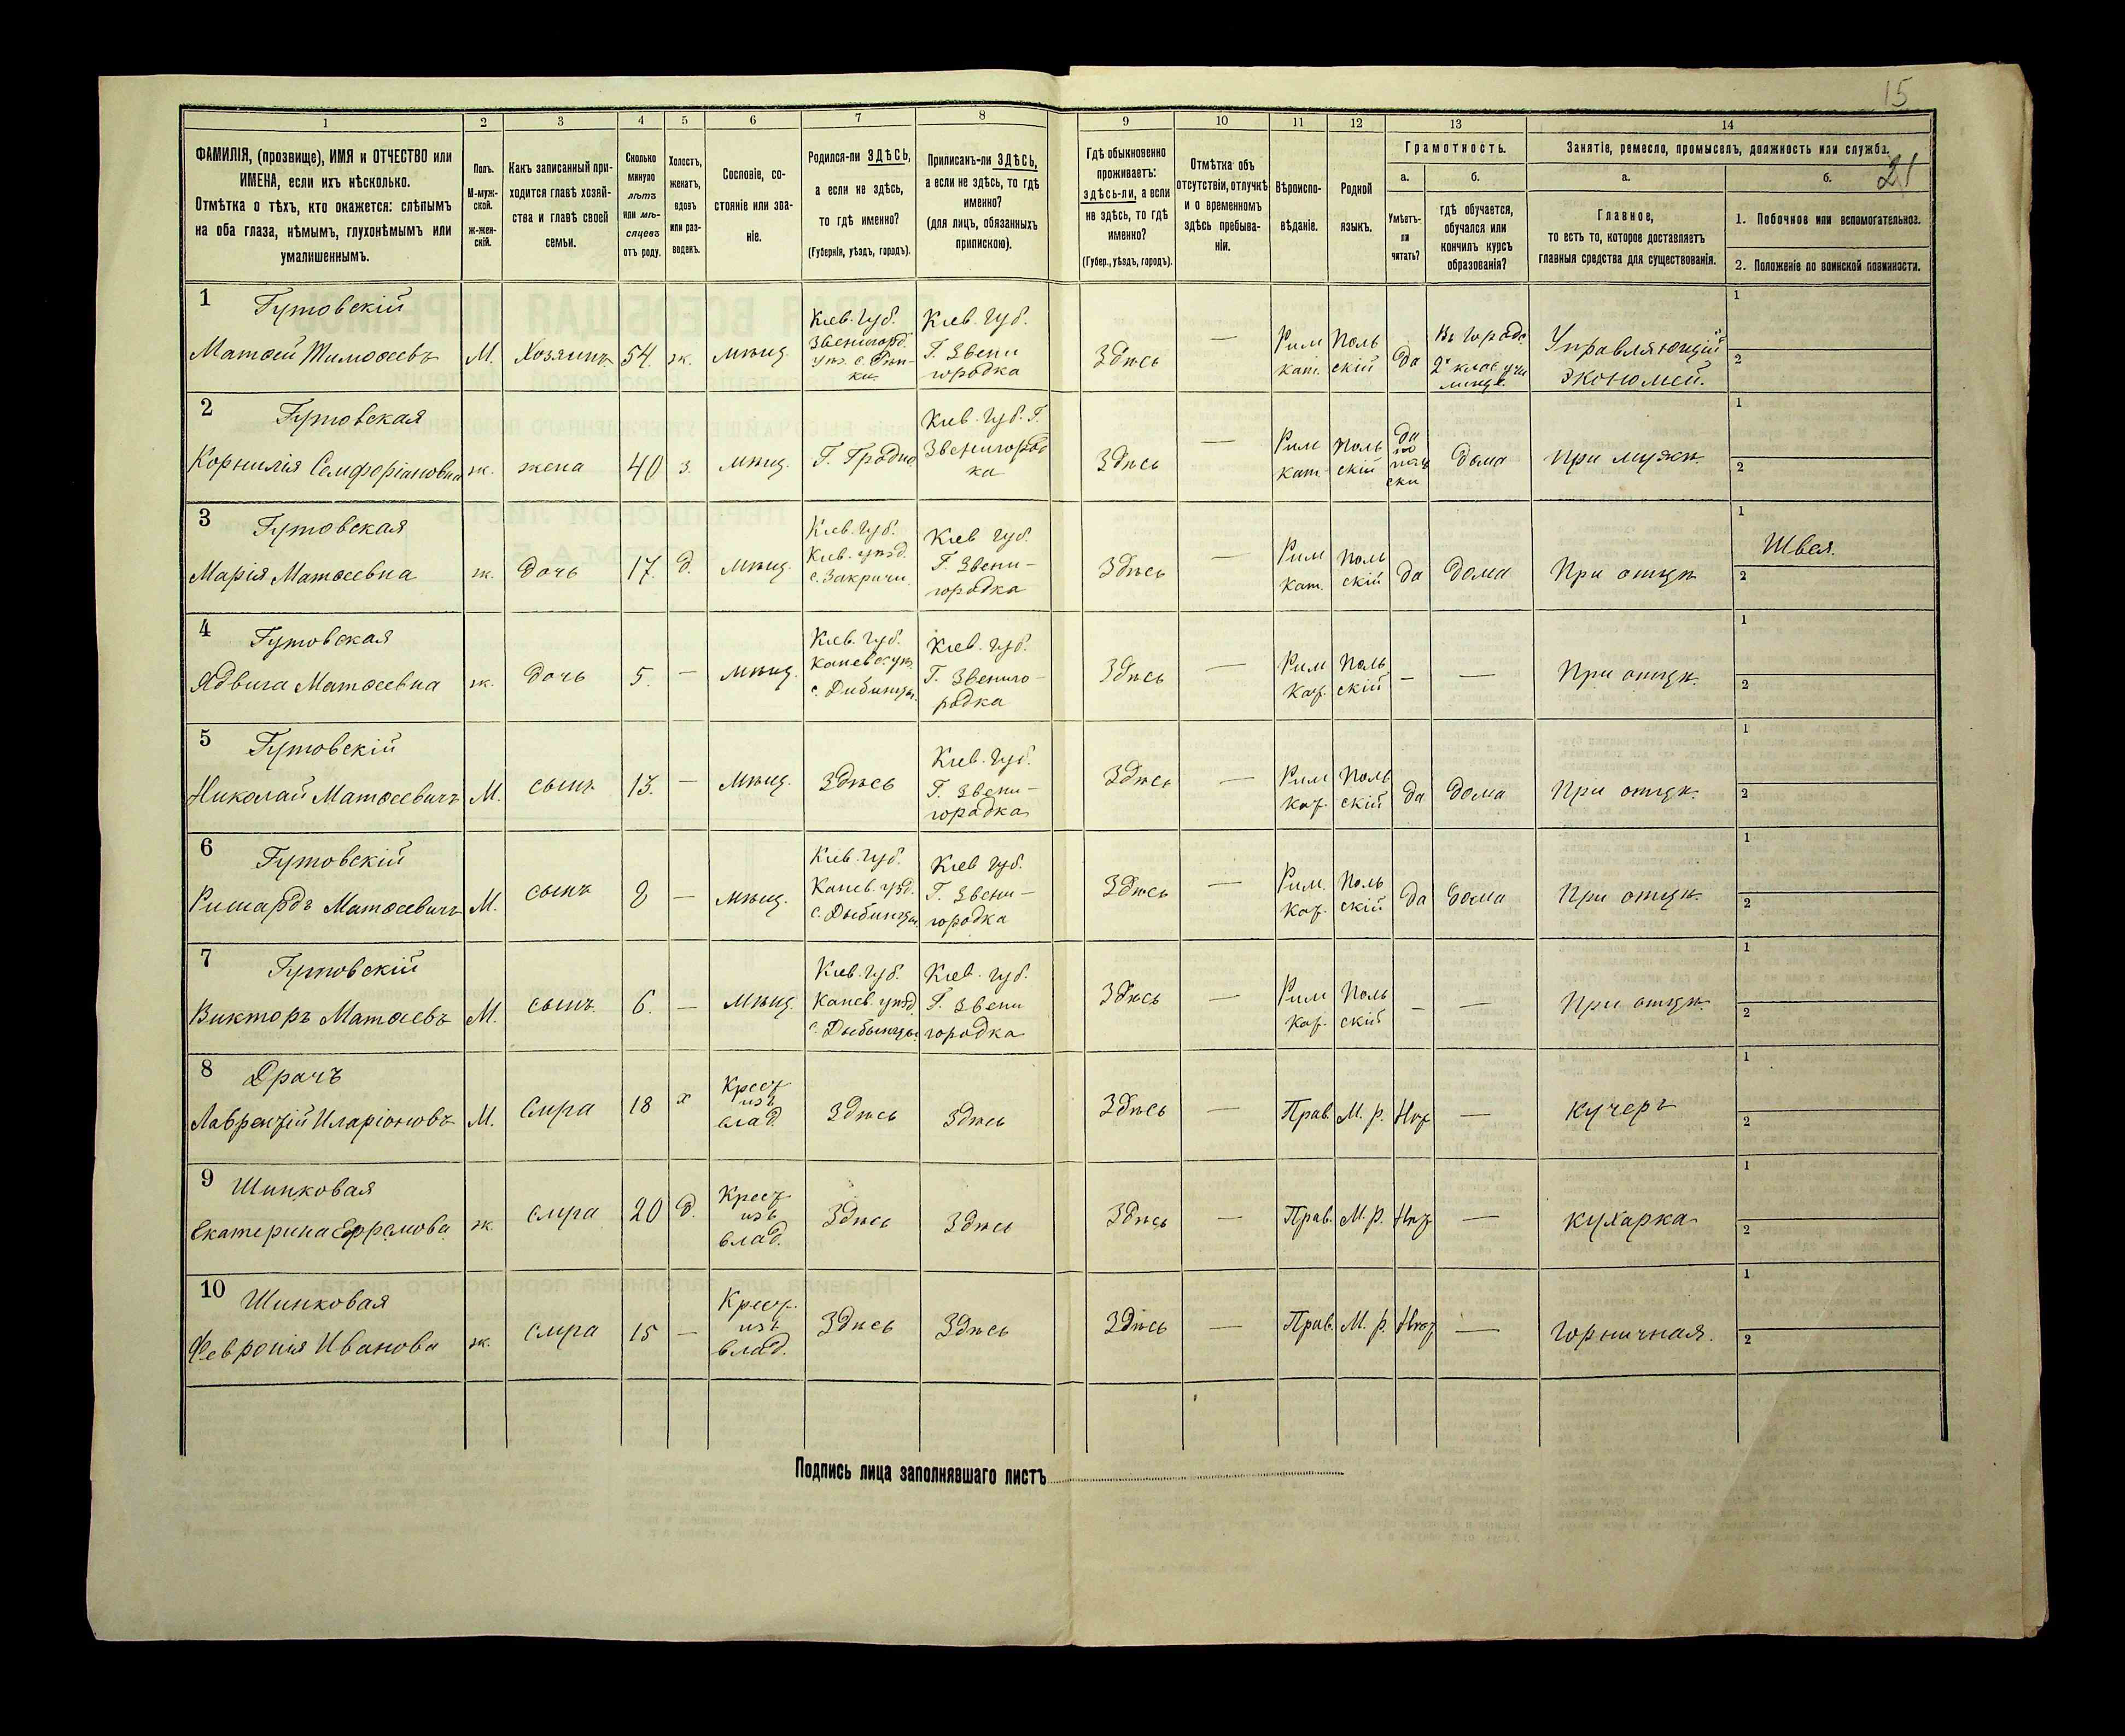 15
21
1 2 3 4 5 6 7 8 9 10 11 12 13 14
ФАМИЛІЯ, (прозвище), ИМЯ и ОТЧЕСТВО или
ИМЕНА, если ихъ нѣсколько.
Отмѣтка о тѣхъ, кто окажется: слѣпымъ
на оба глаза, нѣмымъ, глухонѣмымъ или
умалишеннымъ.
Полъ.
М-муж-
ской.
ж-жен-
скій.
Какъ записанный при-
ходится главѣ хозяй-
ства и главѣ своей
семьи.
Сколько
минуло
лѣтъ
или мѣ-
сяцевъ
отъ роду.
Холостъ,
женатъ,
вдовъ
или раз-
веденъ.
Сословіе, со-
стояніе или зва-
ніе.
Родился-ли ЗДѢСЬ,
а если не здѣсь,
то гдѣ именно?
(Губернія, уѣздъ, городъ).
Приписанъ-ли ЗДѢСЬ,
а если не здѣсь, то гдѣ
именно?
(для лицъ, обязанныхъ
припискою).
Гдѣ обыкновенно
проживаетъ:
здѣсь-ли, а если
не здѣсь, то гдѣ
именно?
(Губер., уѣздъ, городъ).
Отмѣтка объ
отсутствіи, отлучкѣ
и о временномъ
здѣсь пребыва-
ніи.
Вѣроиспо-
вѣданіе.
Родной
языкъ.
Грамотность.
а.
Умѣетъ-
ли
читать?
б.
гдѣ обучается,
обучался или
кончилъ курсъ
образованія?
Занятіе, ремесло, промыселъ, должность или служба.
а.
Главное,
то есть то, которое доставляетъ
главныя средства для существованія.
б.
1. Побочное или вспомогательное.
2. Положеніе по воинской повинности.
1 Гутовскій
Матѳей Тимоѳеевъ
М.
Хозяинъ
54.
ж.
мѣщ.
Кіев. Губ.
Звенигород.
Кіев. Губ.
Г. Звени
городка
Здѣсь
—
Рим
кат.
Поль
скій
да
Въ город.
2х клас. учи
лищѣ.
Управляющій
Экономіей.
1
2
2 Гутовская
Корнилія Семферіановна
ж.
жена
40
з.
мѣщ.
Г. Гродно.
Кіев. Губ. Г.
Звенигород
ка
Здѣсь
—
Рим
кат.
Поль
скій
да
по
поль
ски
дома
При мужѣ.
1
2
3 Гутовская
Марія Матѳеевна
ж.
дочь
17.
д.
мѣщ.
Кіев. Губ.
Кіев. уѣзд.
Кіев Губ.
Г. Звени-
городка
Здѣсь
—
Рим
Кат.
Поль
скій
да
дома
При отцѣ
1
Швея.
2
4 Гутовская
Ядвига Матѳеевна
ж.
дочь
5.
—
мѣщ.
Кіев. Губ.
Канев. уѣз.
с. Дибинцы.
Кіев. Губ.
Г. Звениго-
родка
Здѣсь
—
Рим
Кат.
Поль
скій
—
—
При отцѣ.
1
2
5 Гутовскій
Николай Матѳеевичъ
М.
сынъ
13.
—
мѣщ.
Здѣсь
Кіев. Губ.
Г. Звени-
городка
Здѣсь
—
Рим
Кат.
Поль
скій
да
дома
При отцѣ.
1
2
6 Гутовскій
Ришардъ Матѳеевичъ
М.
сынъ
8
—
мѣщ.
Кіев. Губ.
Канев. уѣзд.
с. Дыбинцы.
Кіев Губ.
Г. Звени-
городка
Здѣсь
—
Рим.
Кат.
Поль
скій
да
дома
При отцѣ.
1
2
7 Гутовскій
Викторъ Матѳеевъ
М.
сынъ.
6.
—
мѣщ.
Кіев. Губ.
Канев. уѣзд
с. Дыбынцы.
Кіев. Губ.
Г. Звени
городка
Здѣсь
—
Рим
Кат.
Поль
скій
—
—
При отцѣ.
1
2
8 Драчъ
Лаврентій Иларіоновъ
М.
Слуга
18
х
Крест
изъ
влад.
Здѣсь
Здѣсь
Здѣсь
—
Прав.
М. р.
Нѣт
—
Кучеръ
1
2
9 Шипковая
Екатерина Ефремова
ж.
слуга
20
д.
Крест
изъ
влад.
Здѣсь
Здѣсь
Здѣсь
—
Прав.
М. р.
Нѣт
—
Кухарка
1
2
10 Шипковая
Февронія Иванова
ж.
слуга
15
—
Крест.
изъ
влад.
Здѣсь
Здѣсь
Здѣсь
—
Прав.
М. р.
Нѣт
—
горничная.
1
2
Подпись лица заполнявшаго листъ